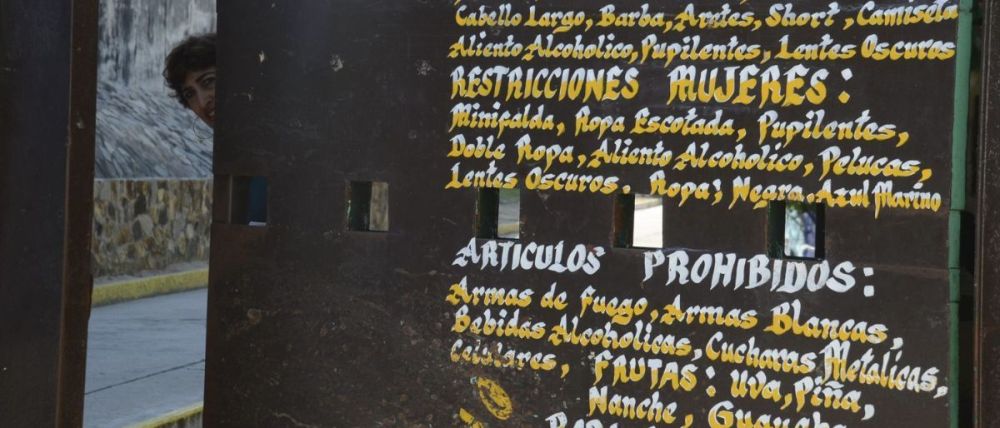 Cabello Largo, Barba, Aretes, Short, Camiseta
Aliento Alcoholico, Pupilentes, Lentes Oscuros
RESTRICCIONES MUJERES:
Minifalda, Ropa Escotada, Pupilentes,
Doble Ropa, Aliento Alcoholico, Pelucas,
Lentes Oscuros. Ropa; Negra, Azul Marino
ARTICULOS PROHIBIDOS:
Armas de Fuego, Armas Blancas,
Bebidas Alcoholicas, Cucharas Metalicas,
Celulares, FRUTAS: Uva, Piña,
Nanche, Guayaba